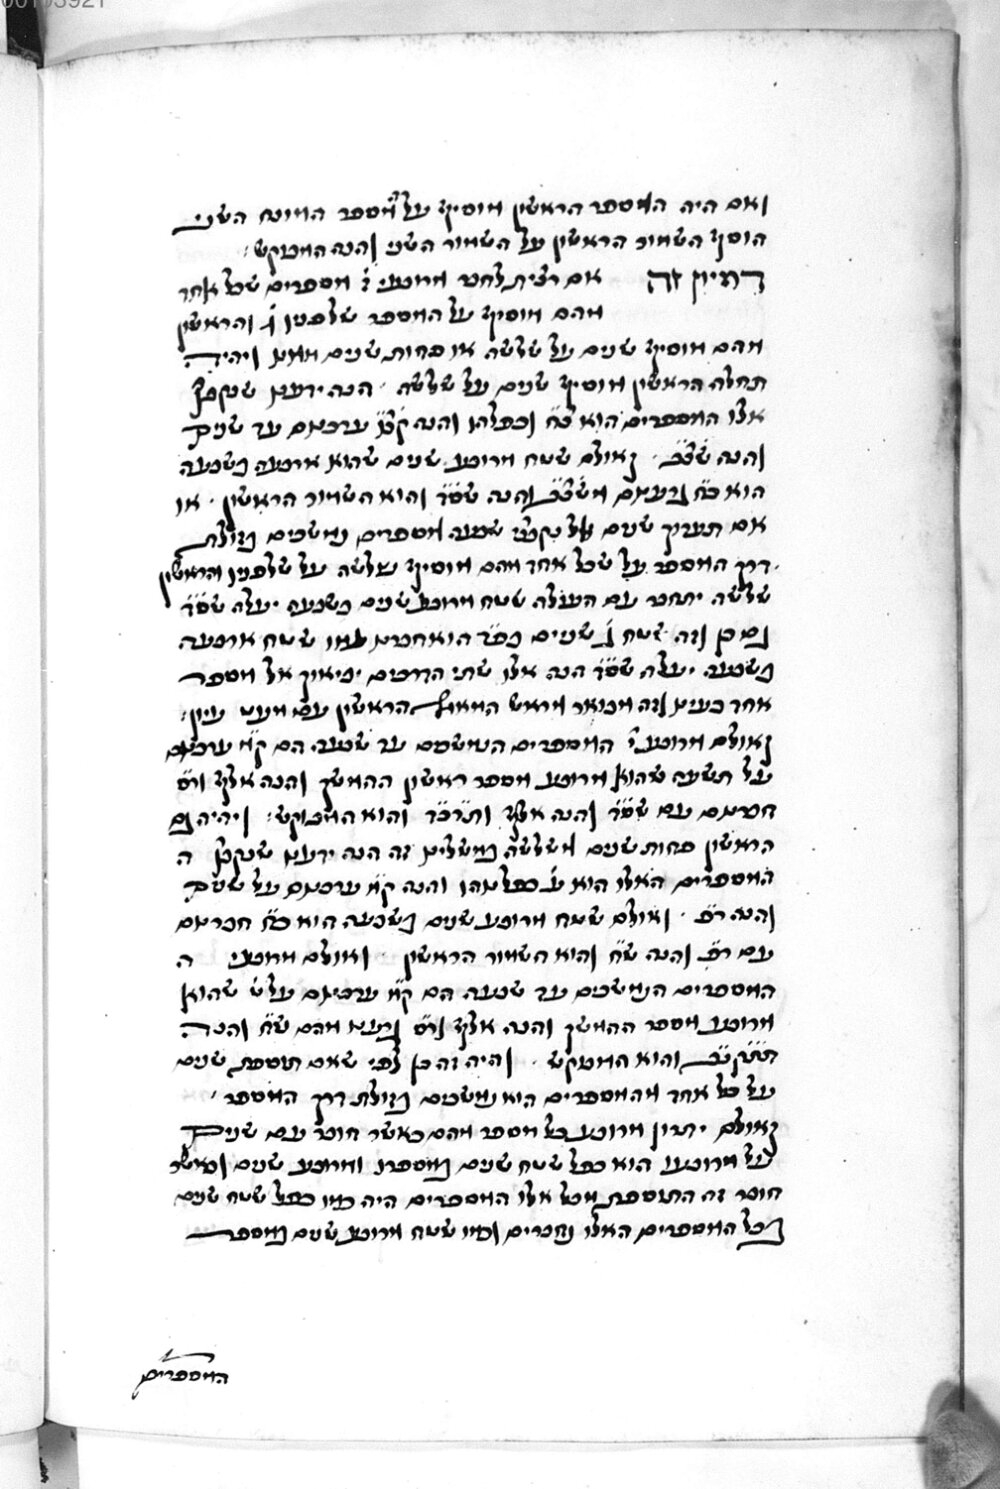 00103921
ואם היה המספר הראשון מוסיף על מספר המונח השני
הוסף השמור הראשון על השמור השני והנה המבוקש
דמיון זה אם רצית לחבר מרובעי ז' מספרים שכל אחד
מהם מוסיף על המספר שלפניו והראשון
מהם מוסיף שנים על שלשה או פחות שנים ממנו ויהיה
תחלה הראשון מוסיף שנים על שלשה הנה ידענו שנקבץ
אלו המספרים הוא וכפלנהו והנה ערכנום עד שנים
והנה שצ"ב ואולם שטח מרובע שנים שהוא ארבעה בשבעה
הוא כ"ח גרענום משצ"ב והנה שס"ד והוא השמור הראשון או
אם תערוך שנים אל נקבץ שבעה מספרים נמשכים בזולת
דרך המספר על שכל אחד מהם מוסיף שלשה על שלפניו והראשון
שלשה יחובר עם העולה שטח מרובע שנים בשבעה יעלה שס"ד
גם כן וזה שטח שנים הוא חברנו עמו שטח ארבעה
בשבעה יעלה שס"ד הנה אלו שתי הדרכים יביאוך אל מספר
אחד בעינו וזה מבואר מראש המאמר הראשון עם מעט עיון
ואולם מרובעי המספרים הנמשכים עד שבעה הם ק"מ ערכנום
על תשעה שהוא מרובע מספר ראשון ההמשך והנה אלף ור"ס
חברנום עם שס"ד והנה אלף ותרכ"ד והוא המבוקש ויהיה גם
הראשון פחות שנים משלשה במשלינו זה הנה ידענו שנקבץ ה
המספרים האלו הוא ע' כפלנוהו והנה ק"מ ערכנום על שנים
והנה ר"פ ואולם שטח מרובע שנים בשבעה הוא כ"ח חברנום
עם ר"פ והנה ש"ח והוא השמור הראשון ואולם מרובעי ה
המספרים הנמשכים עד שבעה הם ק"מ ערכנום על ט' שהוא
מרובע מספר ההמשך והנה אלף ור"ס גרענו מהם ש"ח והנה
תתקנ"ב והוא המבוקש והיה זה כן לפי שאם תוספת שנים
על כל אחד מהמספרים הוא נמשכים בזולת דרך המספר
ואולם יתרון מרובע כל מספר מהם כאשר חובר עם שנים
על מרובעו הוא כפל שטח שנים במספרו ומרובע שנים וכאשר
חובר זה התוספת מכל אלו המספרים היה כמו כפל שטח שנים
בכל המספרים האלו נחברים וכמו שטח מרובע שנים במספר
המספרים